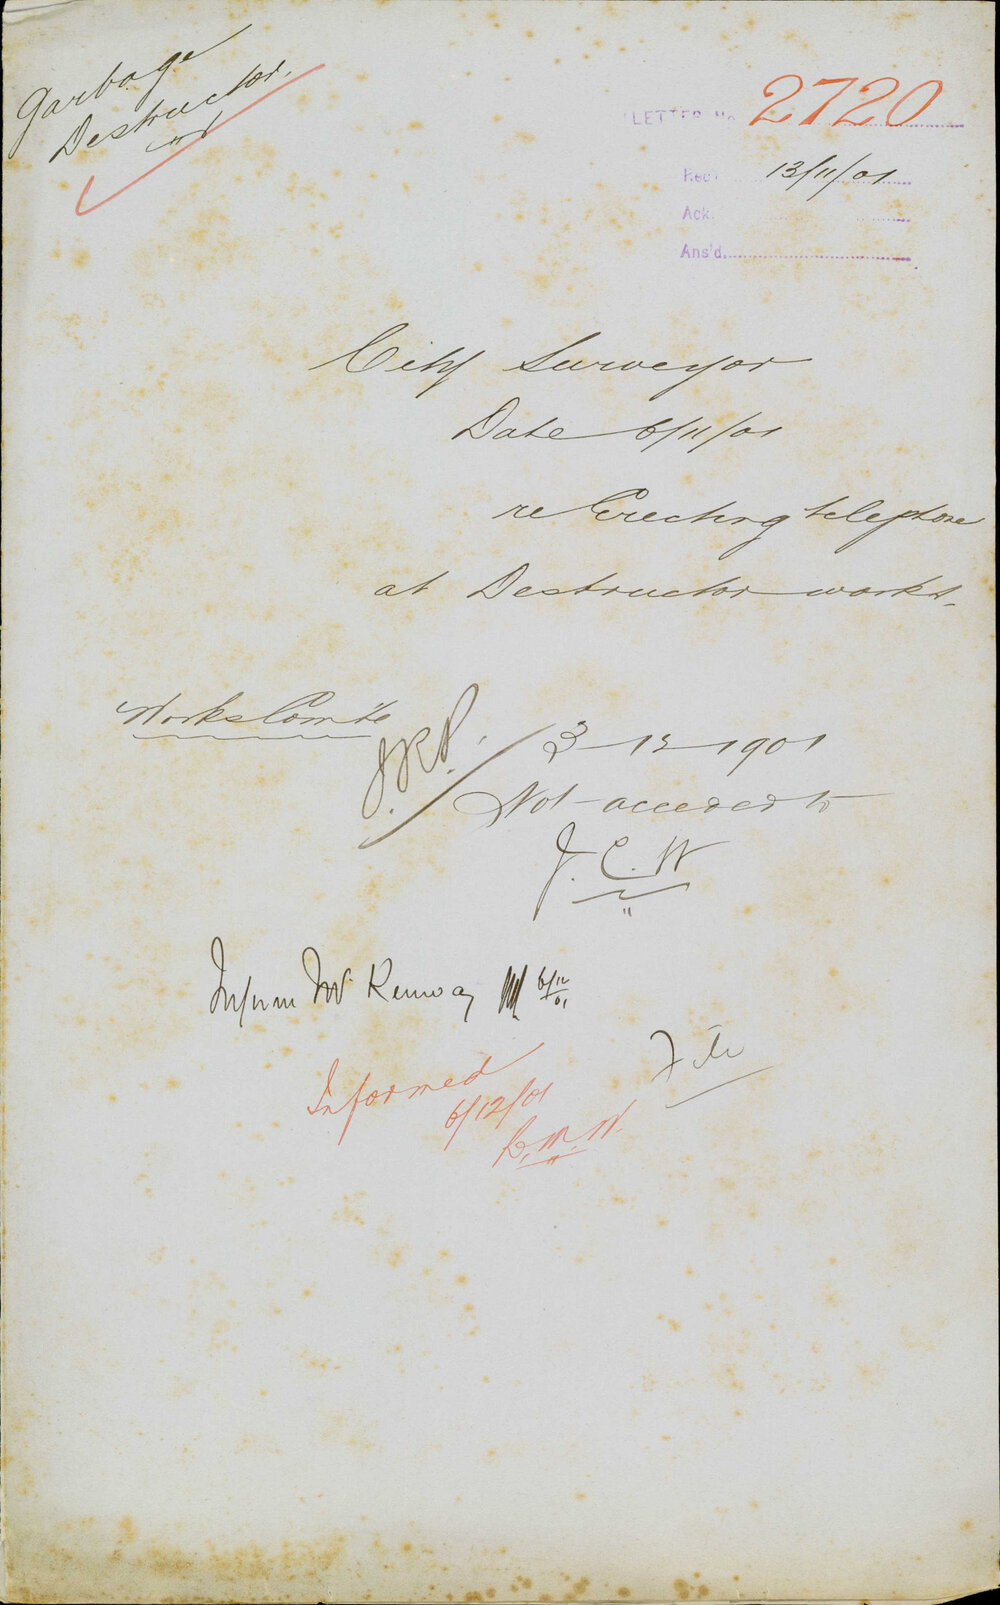 Garbage
Destructor.
LETTER No. 2720
Rec'd 13/11/01
Ack.
Ans'd
City Surveyor
Date 6/11/01
re Erecting telephone
at Destructor works.
Works Comte
3-12-1901
Not acceded to
J.C.W
Inform Mr 6/12/01
File
Informed
6/12/01